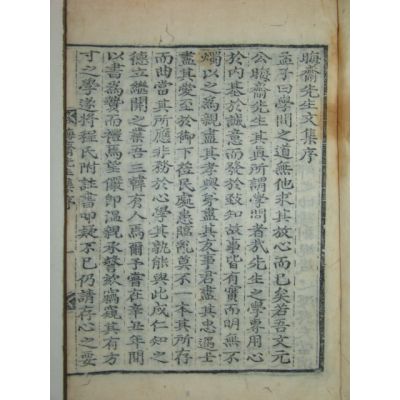 晦齋先生文集序
孟子曰學問之道無他求其放心而已矣若吾文元
公晦齋先生其眞所謂學問者哉先生之學專用心
於內基於誠意而發於致知故事皆有實而明無不
燭以之爲親盡其孝與弟盡其友事君盡其忠遇壬
盡其愛至於御下莅民處患臨亂莫不一本其所存
而曲當其所應非務於心學其孰能與此成仁知之
德立繼開之業吾三韓有人焉爾予嘗在辛丑年間
以書爲贄而禮焉望儼卽溫親承謦欬竊窺其有方
寸之學遂將程氏附註書叩疑不已仍請存心之要